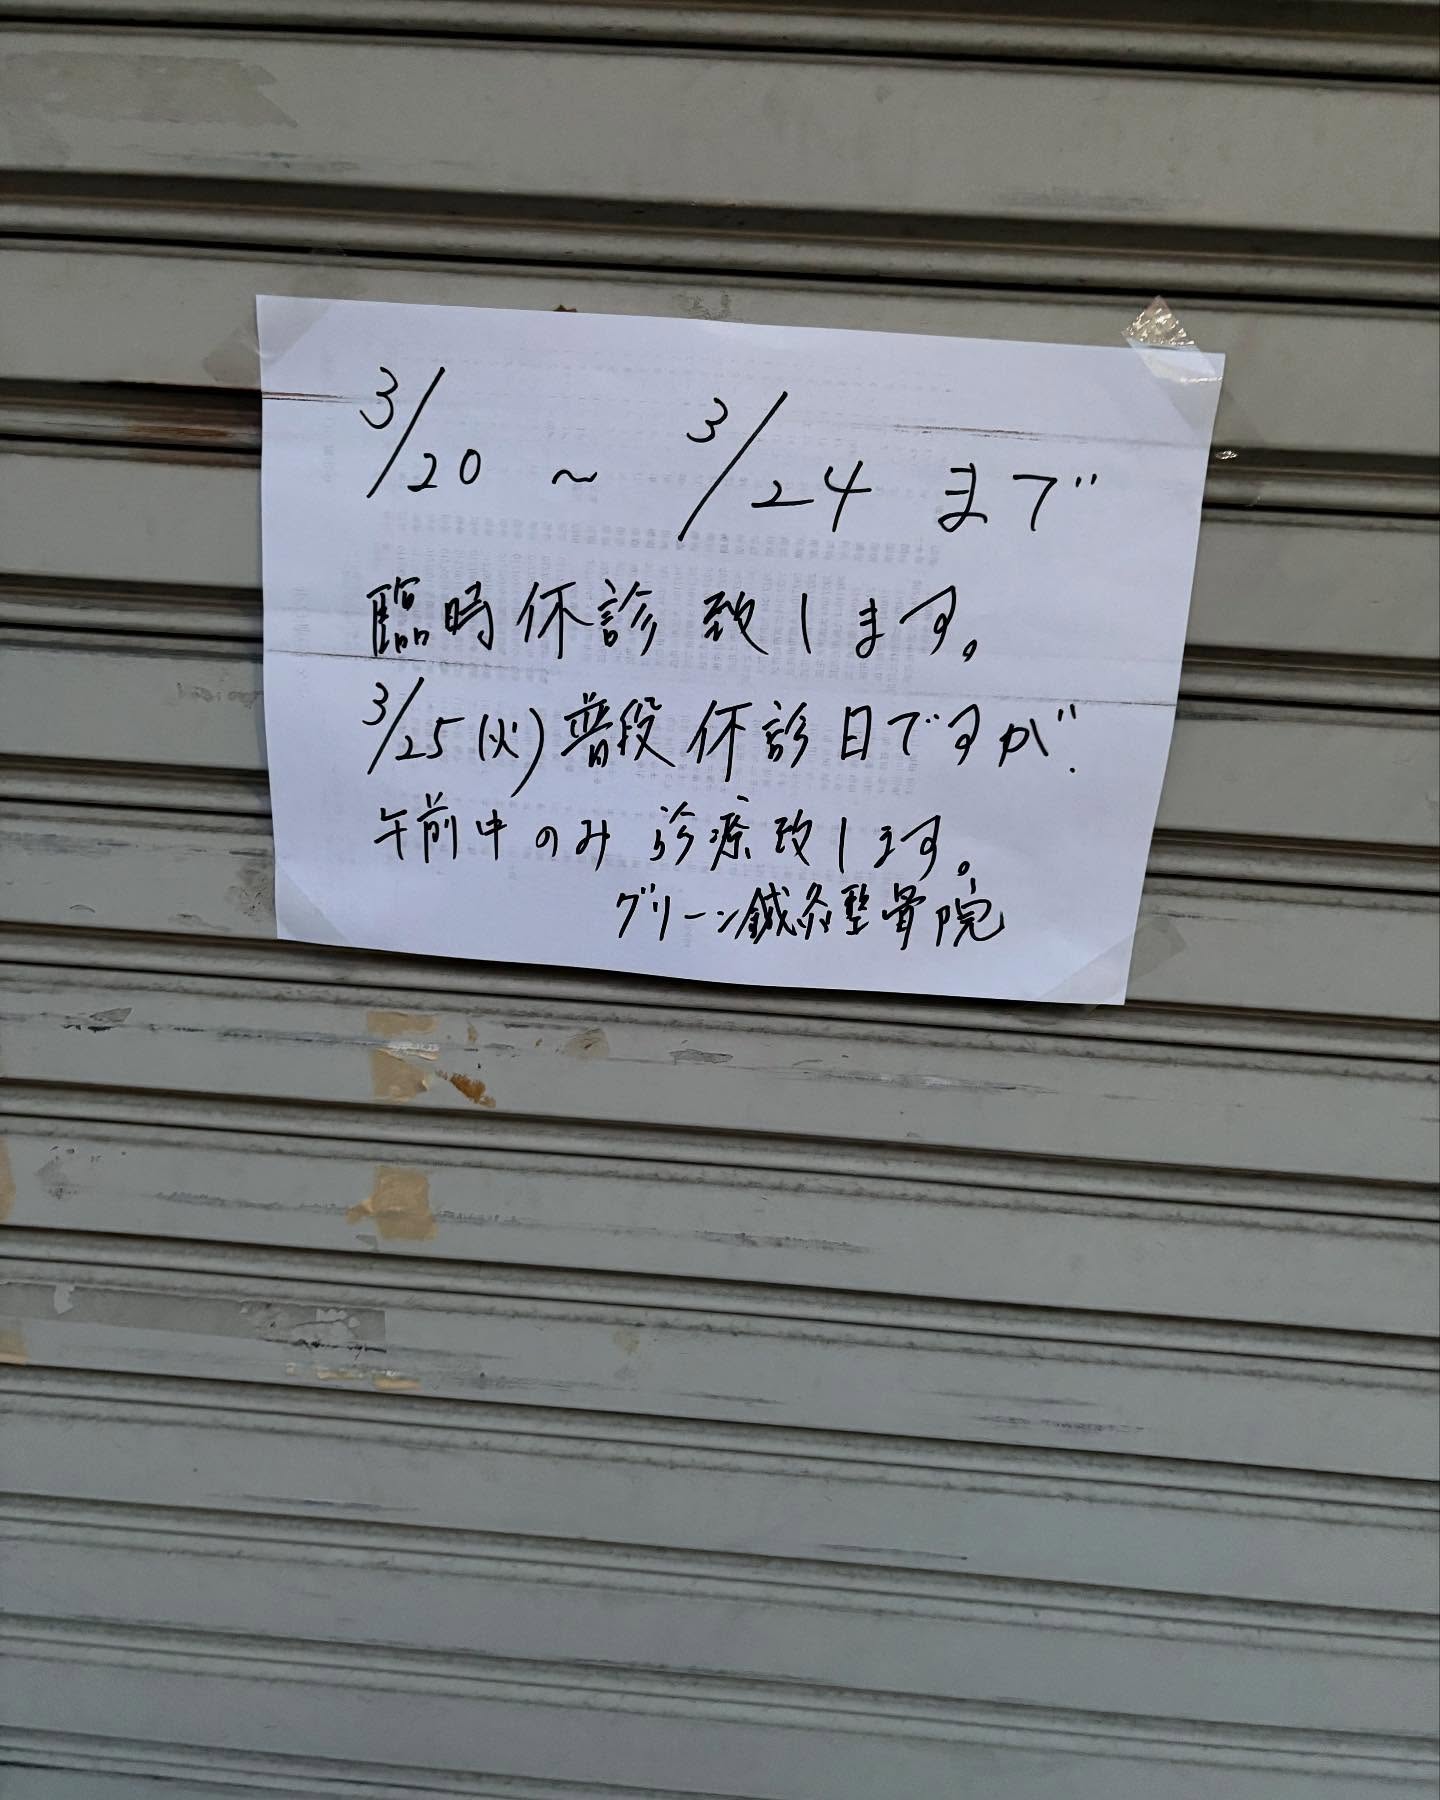 3/20 ~ 3/24 まで
臨時休診致します。
3/25(火)普段休診日ですが.
午前中のみ診療致します。
グリーン鍼灸整骨院